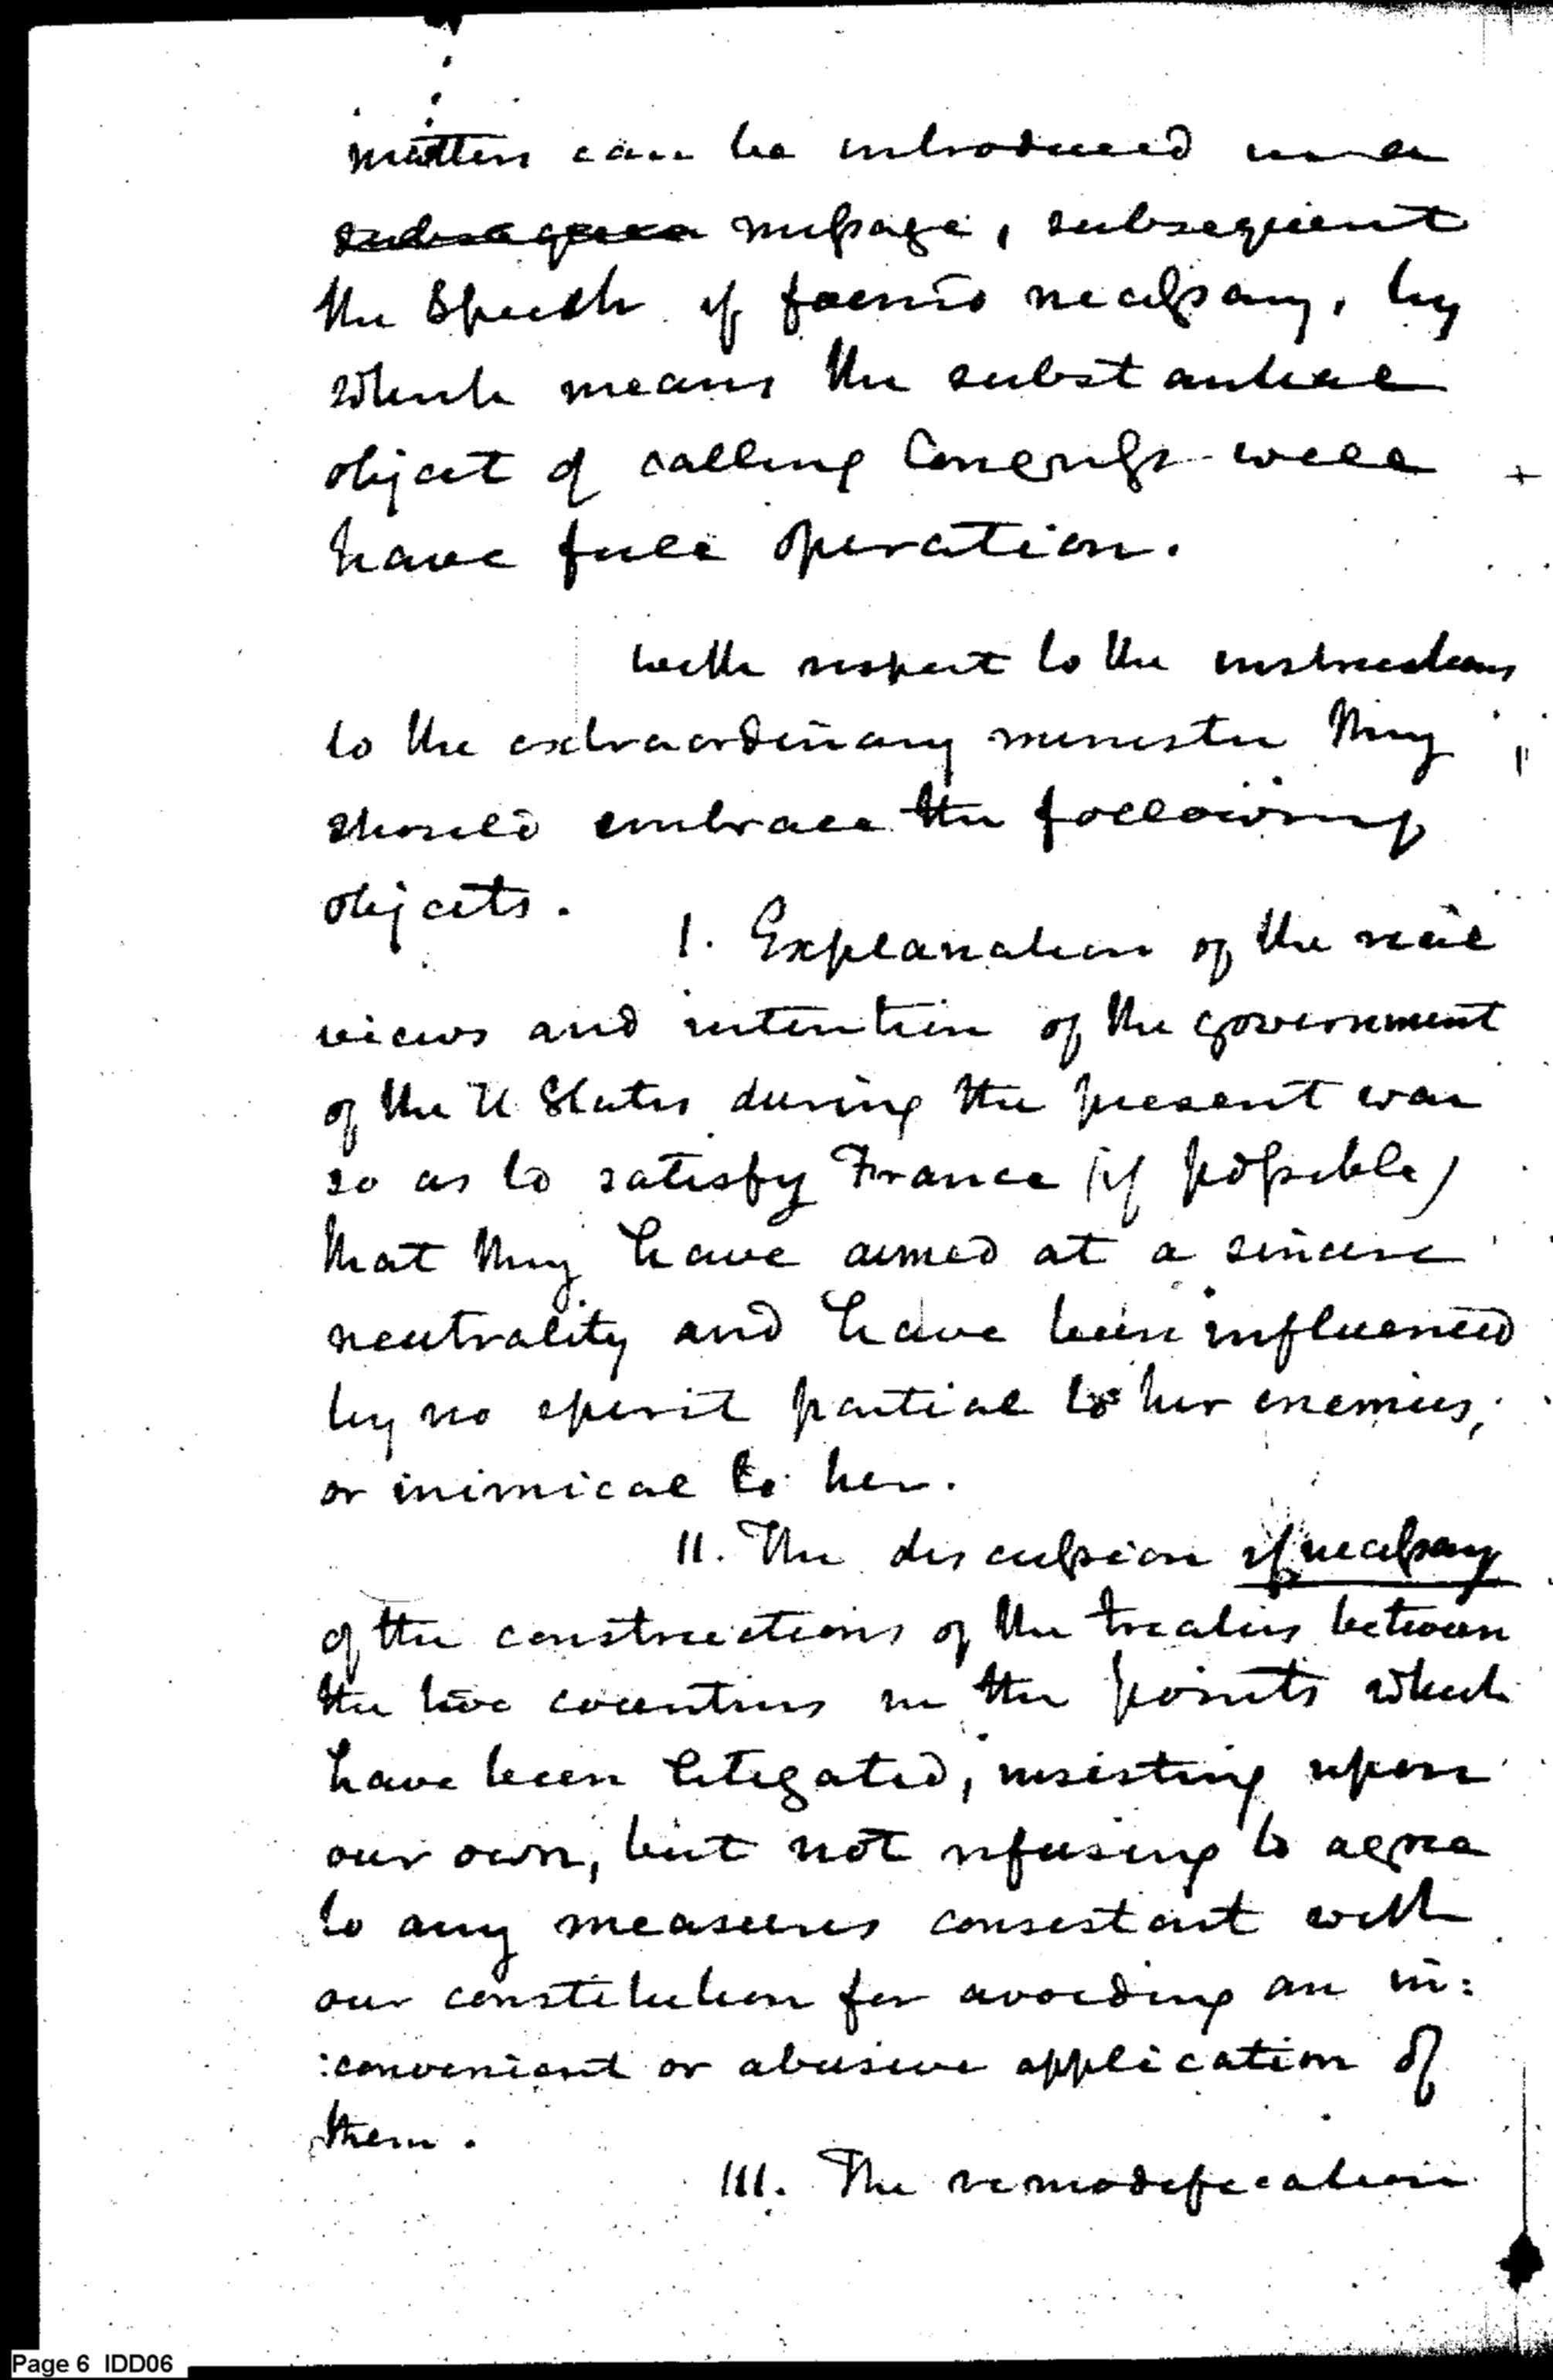 matters can be introduced in a
subsequen message, subsequent
the Speech if found necessary, by
which means the substantial
object of calling Congress will
have full operation.
With respect to the instructions
to the extraordinary minister they
should embrace the following
objects.
I. Explanation of the real
views and intention of the government
of the U States during the present war
so as to satisfy France (if possible)
that they have aimed at a sincere
neutrality and have been influenced
by no spirit partial to her enemies,
or inimical to her.
II. The discussion if necessary
of the constructions of the treaties between
the two countries in the points which
have been litigated, insisting upon
our own, but not refusing to agree
to any measures consistent with
our constitution for avoiding an in:
:convenient or abusive application of
them.
III. The remodification
Page 6 IDD06